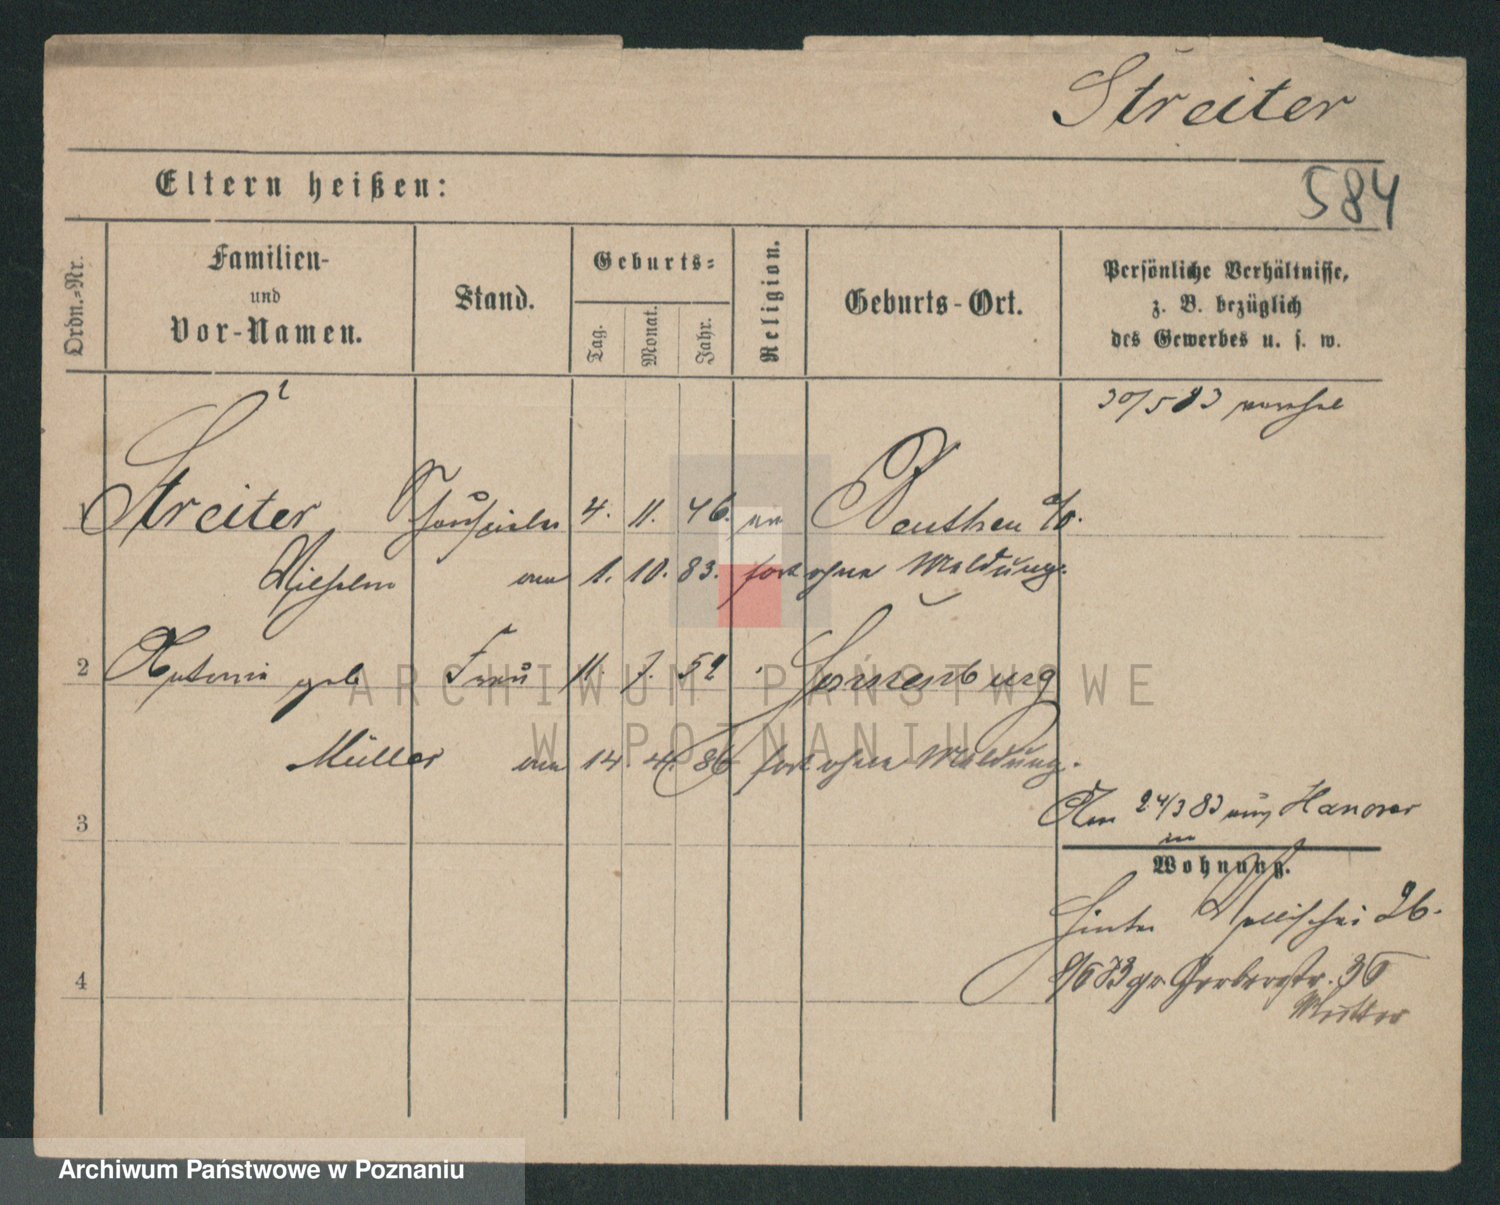 Streiter
Eltern heißen:
584
Ordn.-Nr.
Familien-
und
Vor-Namen.
Stand.
Geburts-
Tag.
Monat.
Jahr.
Religion.
Geburts-Ort.
Persönliche Verhältnisse,
z. B. bezüglich
des Gewerbes u. s. w.
30/5 83
1 Streiter, Schauspieler 4. 11. 46. ev Beuthen a/O.
Wilhelm am 1. 10. 83. fort ohne Meldung.
2 Antonie geb Frau 11. 7. 52 Sonnenburg
Müller am 14. 4. 86 fort ohne Meldung.
3
Am 24/3 83 aus Hanover
in
Wohnung.
Hinter Wallischei 26.
4
gr. Gerberstr. 36
Mutter
ARCHIWUM PAŃSTWOWE
W POZNANIU
Archiwum Państwowe w Poznaniu